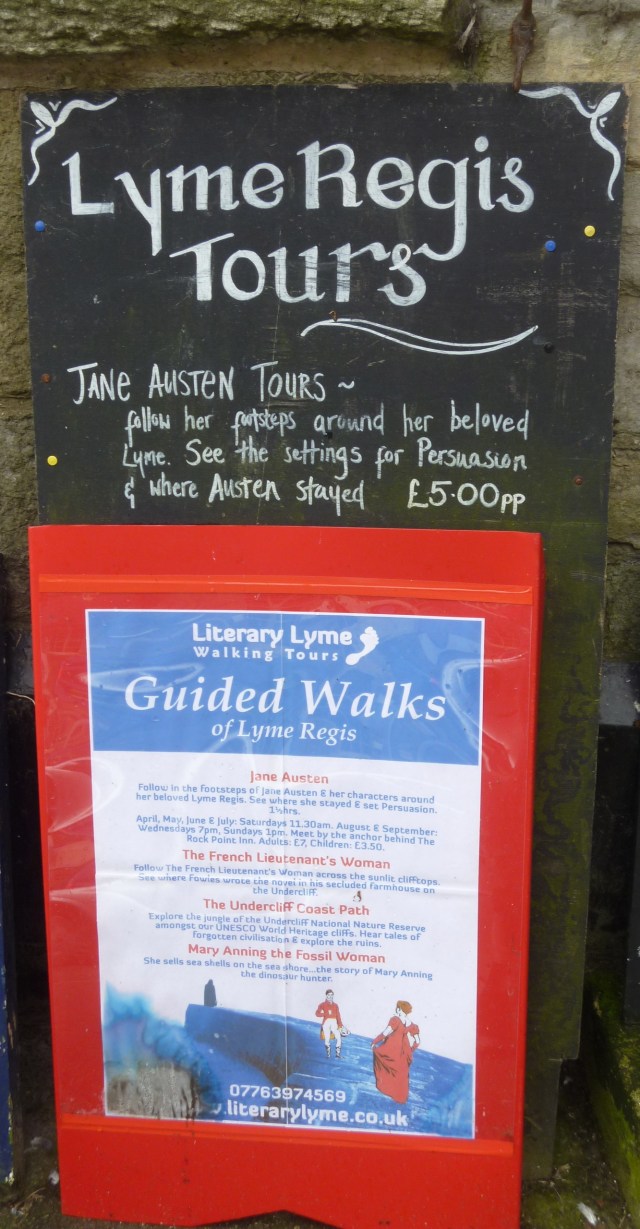 Lyme Regis
Tours
JANE AUSTEN TOURS ~
follow her footsteps around her beloved
Lyme. See the settings for Persuasion
& where Austen stayed £5.00pp
Literary Lyme
Walking Tours
Guided Walks
of Lyme Regis
Jane Austen
Follow in the footsteps of Jane Austen & her characters around
her beloved Lyme Regis. See where she stayed & set Persuasion.
1½hrs.
April, May, June & July: Saturdays 11.30am. August & September:
Wednesdays 7pm, Sundays 1pm. Meet by the anchor behind The
Rock Point Inn. Adults: £7, Children: £3.50.
The French Lieutenant's Woman
Follow The French Lieutenant's Woman across the sunlit clifftops.
See where Fowles wrote the novel in his secluded farmhouse on
the Undercliff.
The Undercliff Coast Path
Explore the jungle of the Undercliff National Nature Reserve
amongst our UNESCO World Heritage cliffs. Hear tales of
forgotten civilisation & explore the ruins.
Mary Anning the Fossil Woman
She sells sea shells on the sea shore...the story of Mary Anning
the dinosaur hunter.
07763974569
.literarylyme.co.uk